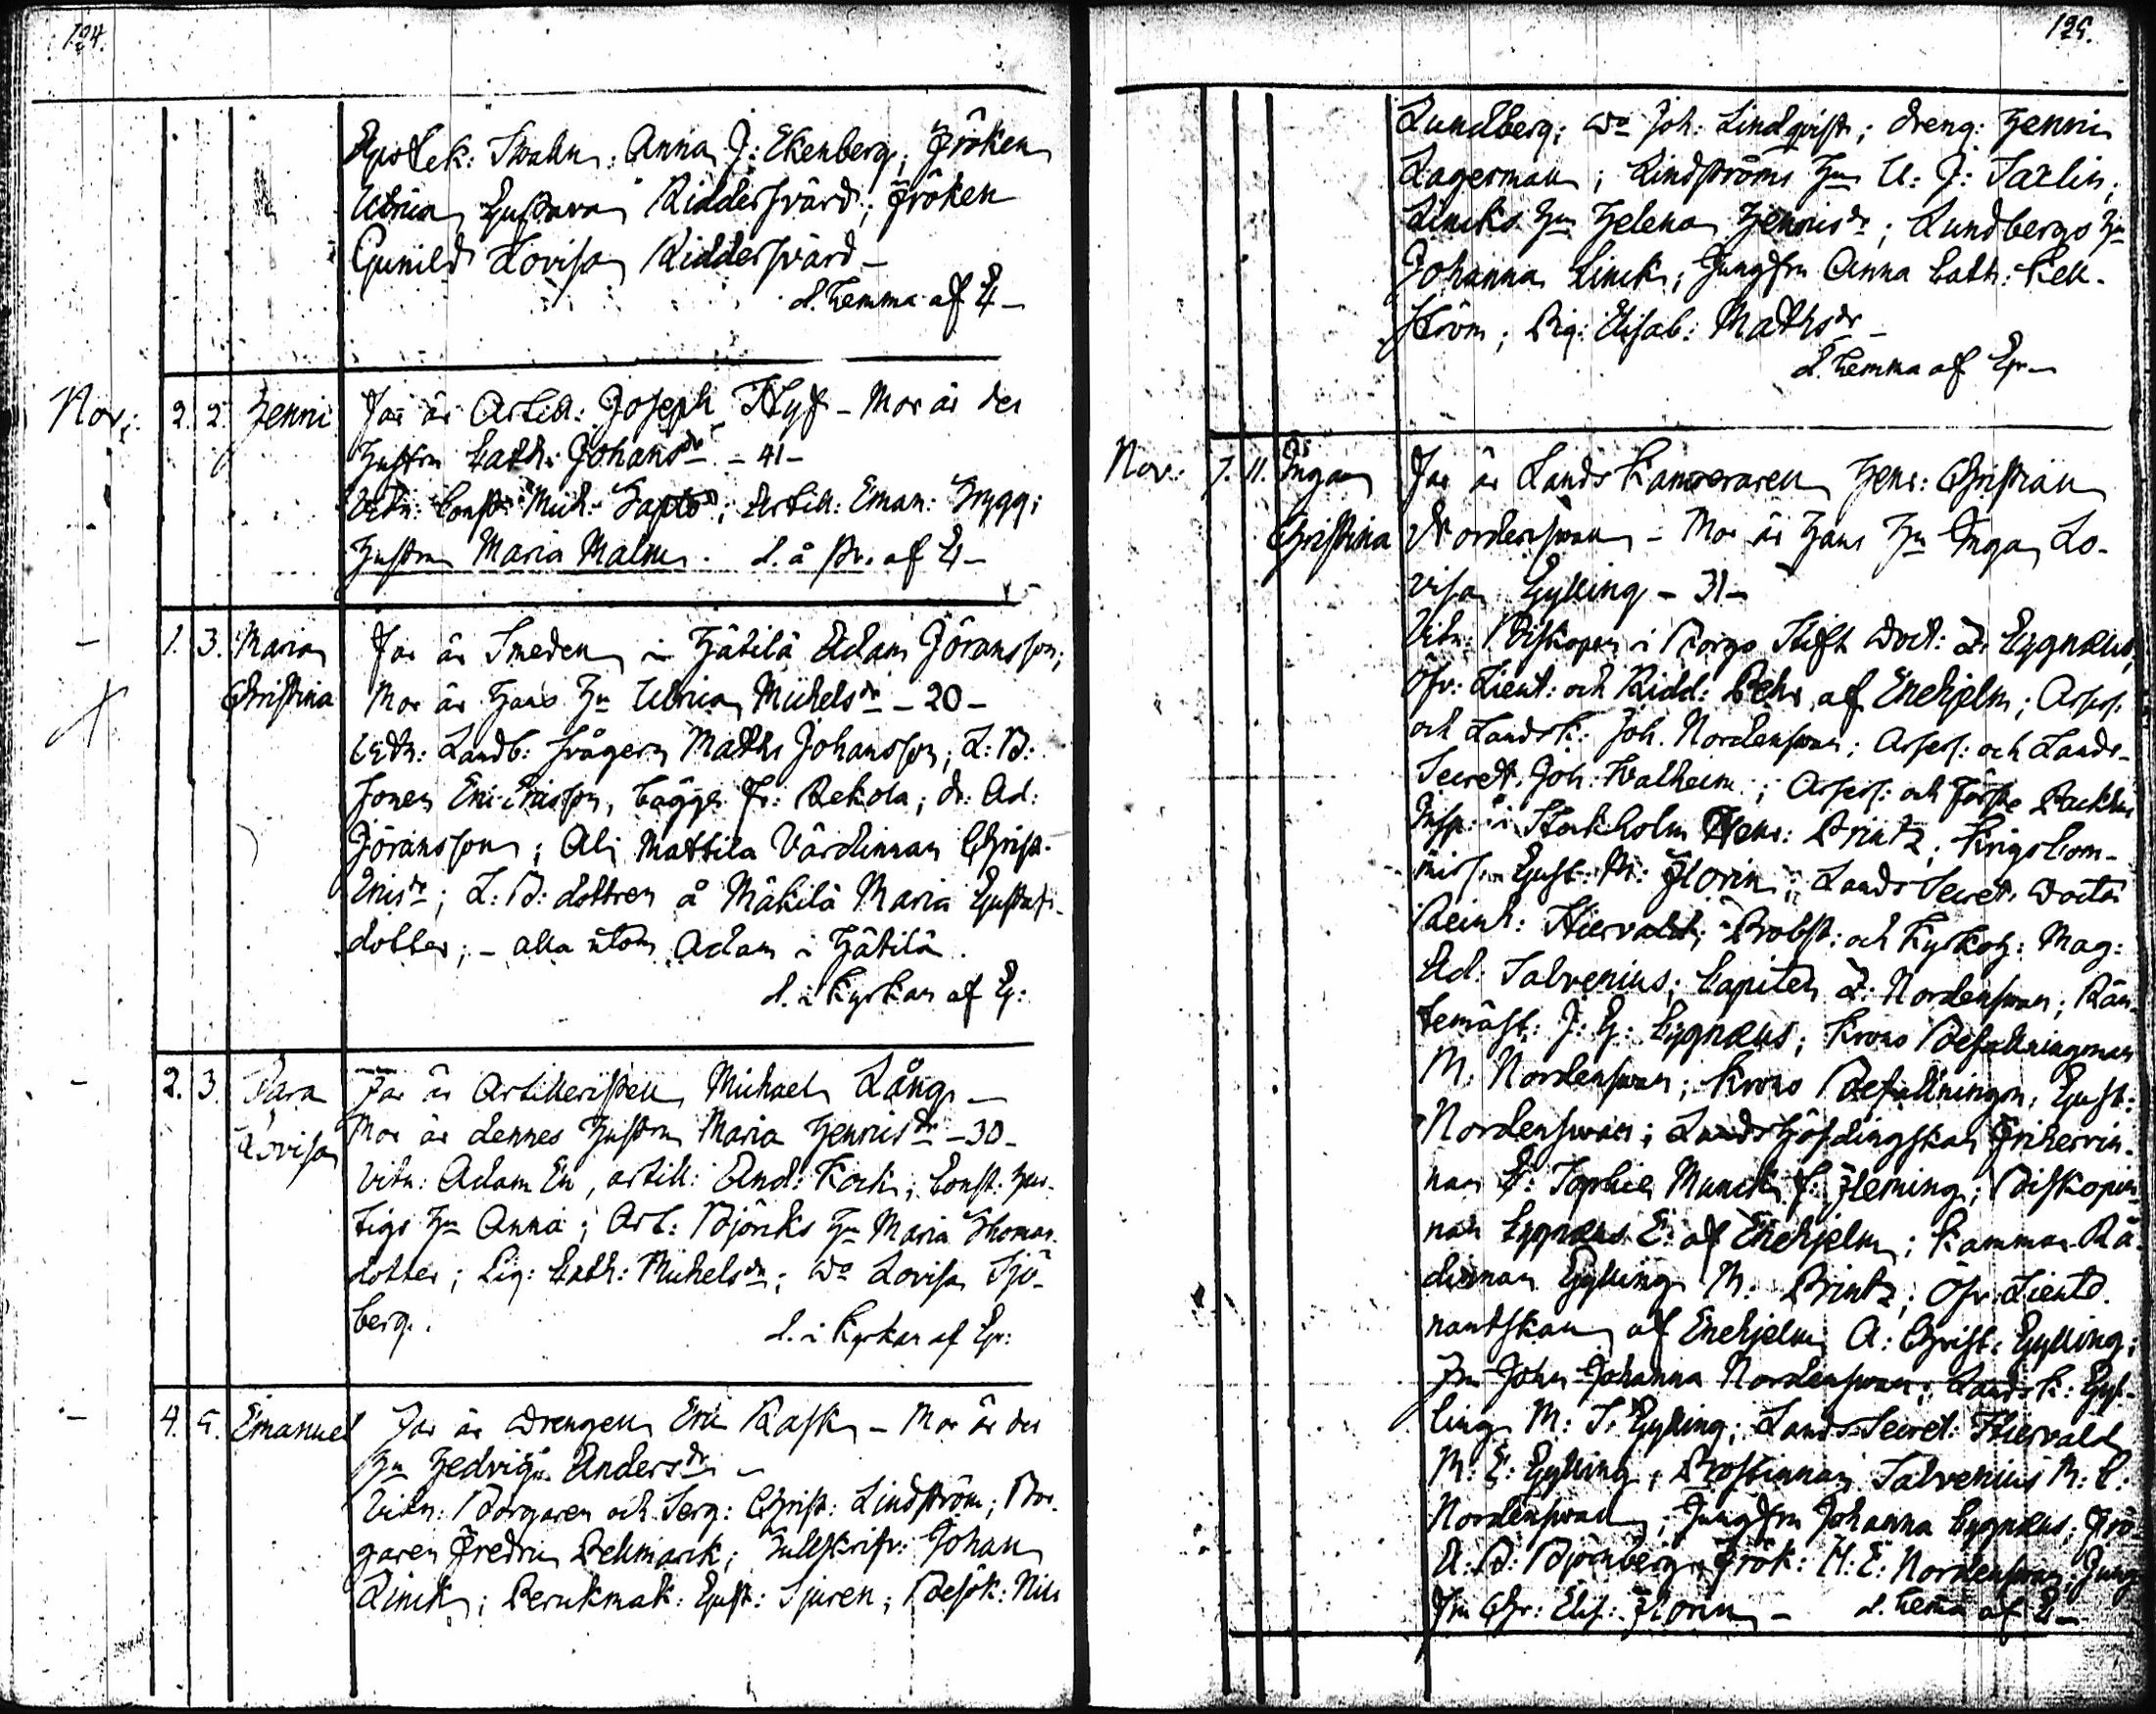 124.
Apotek: Swahn: Anna J: Ekenberg; Fröken
Ulrica Gustava Riddersvärd; fröken
Gunild Lovisa Riddersvärd –
d. hemma af
Nov: 2. 2. Henric Far är Artill: Joseph Styf – Mor är des
hustru Cath: Johansdr – 41 –
Vitn: Const: Mich: ; Artill: Eman: Trygg;
hustru Maria Malm. d. å af
– 1. 3. Maria Christina Far är Smeden i Hätilä Adam Göransson;
Mor är hans hu Ulrica Michelsdr – 20 –
Vitn: Landb: svågern Matths Johansson; L: B:
sonen Eric Ericsson, bägge fr: Rekola; dr: Ad:
Göransson; Ali Mattila Värdinnan Christ:
Ericsdr; L: B: dottren å Mäkilä Maria Gustafs-
dotter; – alla utom Adam i Hätilä.
d. i Kyrkan af
– 2. 3. Sara Lovisa Far är Artilleristen Michael Lång –
Mor är dennes hustru Maria Henricsdr – 30 –
Vitn: Adam En, artill: And: Kock; Const: Hur-
tigs hu Anna; Art: Björks hu Maria Thomas-
dotter; Pig: Cath: Michelsdr; Do Lovisa Sjö-
berg.
d. i Kyrkan af
– 4. 5. Emanuel Far är Drengen Eric Rask – Mor är des
hu Hedvig Andersdr –
Vitn: Borgaren och Serg: Christ: Lindström; Bor-
garen Fredric Pellmark; Tullskrifv: Johan
Linck; Perukmak: Gust: Sjuren; Besök: Nils
125.
Lundberg; Do Joh: Lindqvist; dreng: Henric
Lagerman; Lindströms hu U: J: Saxlin;
Lincks hu Helena Henricsdr; Lundbergs hu
Johanna Linck; Jungfru Anna Cath: Kell-
ström; Pig: Elisab: Mathsdr –
d. hemma af
Nov: 7. 11. Inga Christina Far är Lands Kamreraren Henr: Christian
Nordenswan – Mor är hans hu Inga Lo-
visa Gylling – 31 –
Vitn: Biskopen i Borgo Stift Doct: Z: Cygnæus;
Öfv: Lieut: och Ridd: Pehr af Enehjelm; Assess:
och Landsk: Joh. Nordenswan; Assess: och Lands-
Secret: Joh: Walheim; Assess: och Förste Packhus
Insp: i Stockholm Henr: Printz; Krigs Com-
miss: Gust: M: Florin; Lands Secret:
Reinh: ; Probst: och Kyrkoh: Mag:
Ad: Salvenius; Capiten Z: Nordenswan; Rän-
temäst: J: G: Cygnæus; Krono Befallningsman
M: Nordenswan; Krono Befallningsm: Gust:
Nordenswan; Landshöfdingskan Friherrin-
nan E: Sophie Munck f: Fleming; Biskopin-
nan Cygnæus E: af Enehjelm; Kammar Rå-
dinnan Gylling M: Printz; Öfv: Lieute-
nantskan af Enehjelm A: Christ: Gylling;
Fru Johanna Nordenswan; Landsk: Gyl-
ling M: S: Gylling; Lands Secret:
M: E: Gylling; Prostinnan Salvenius M: C:
Nordenswan; Jungfru Johanna Cygnæus; Frö
A: B: Björnberg; Frök: H: E: Nordenswan; Jung
fru Chr: Elis: Florin – d. hema af